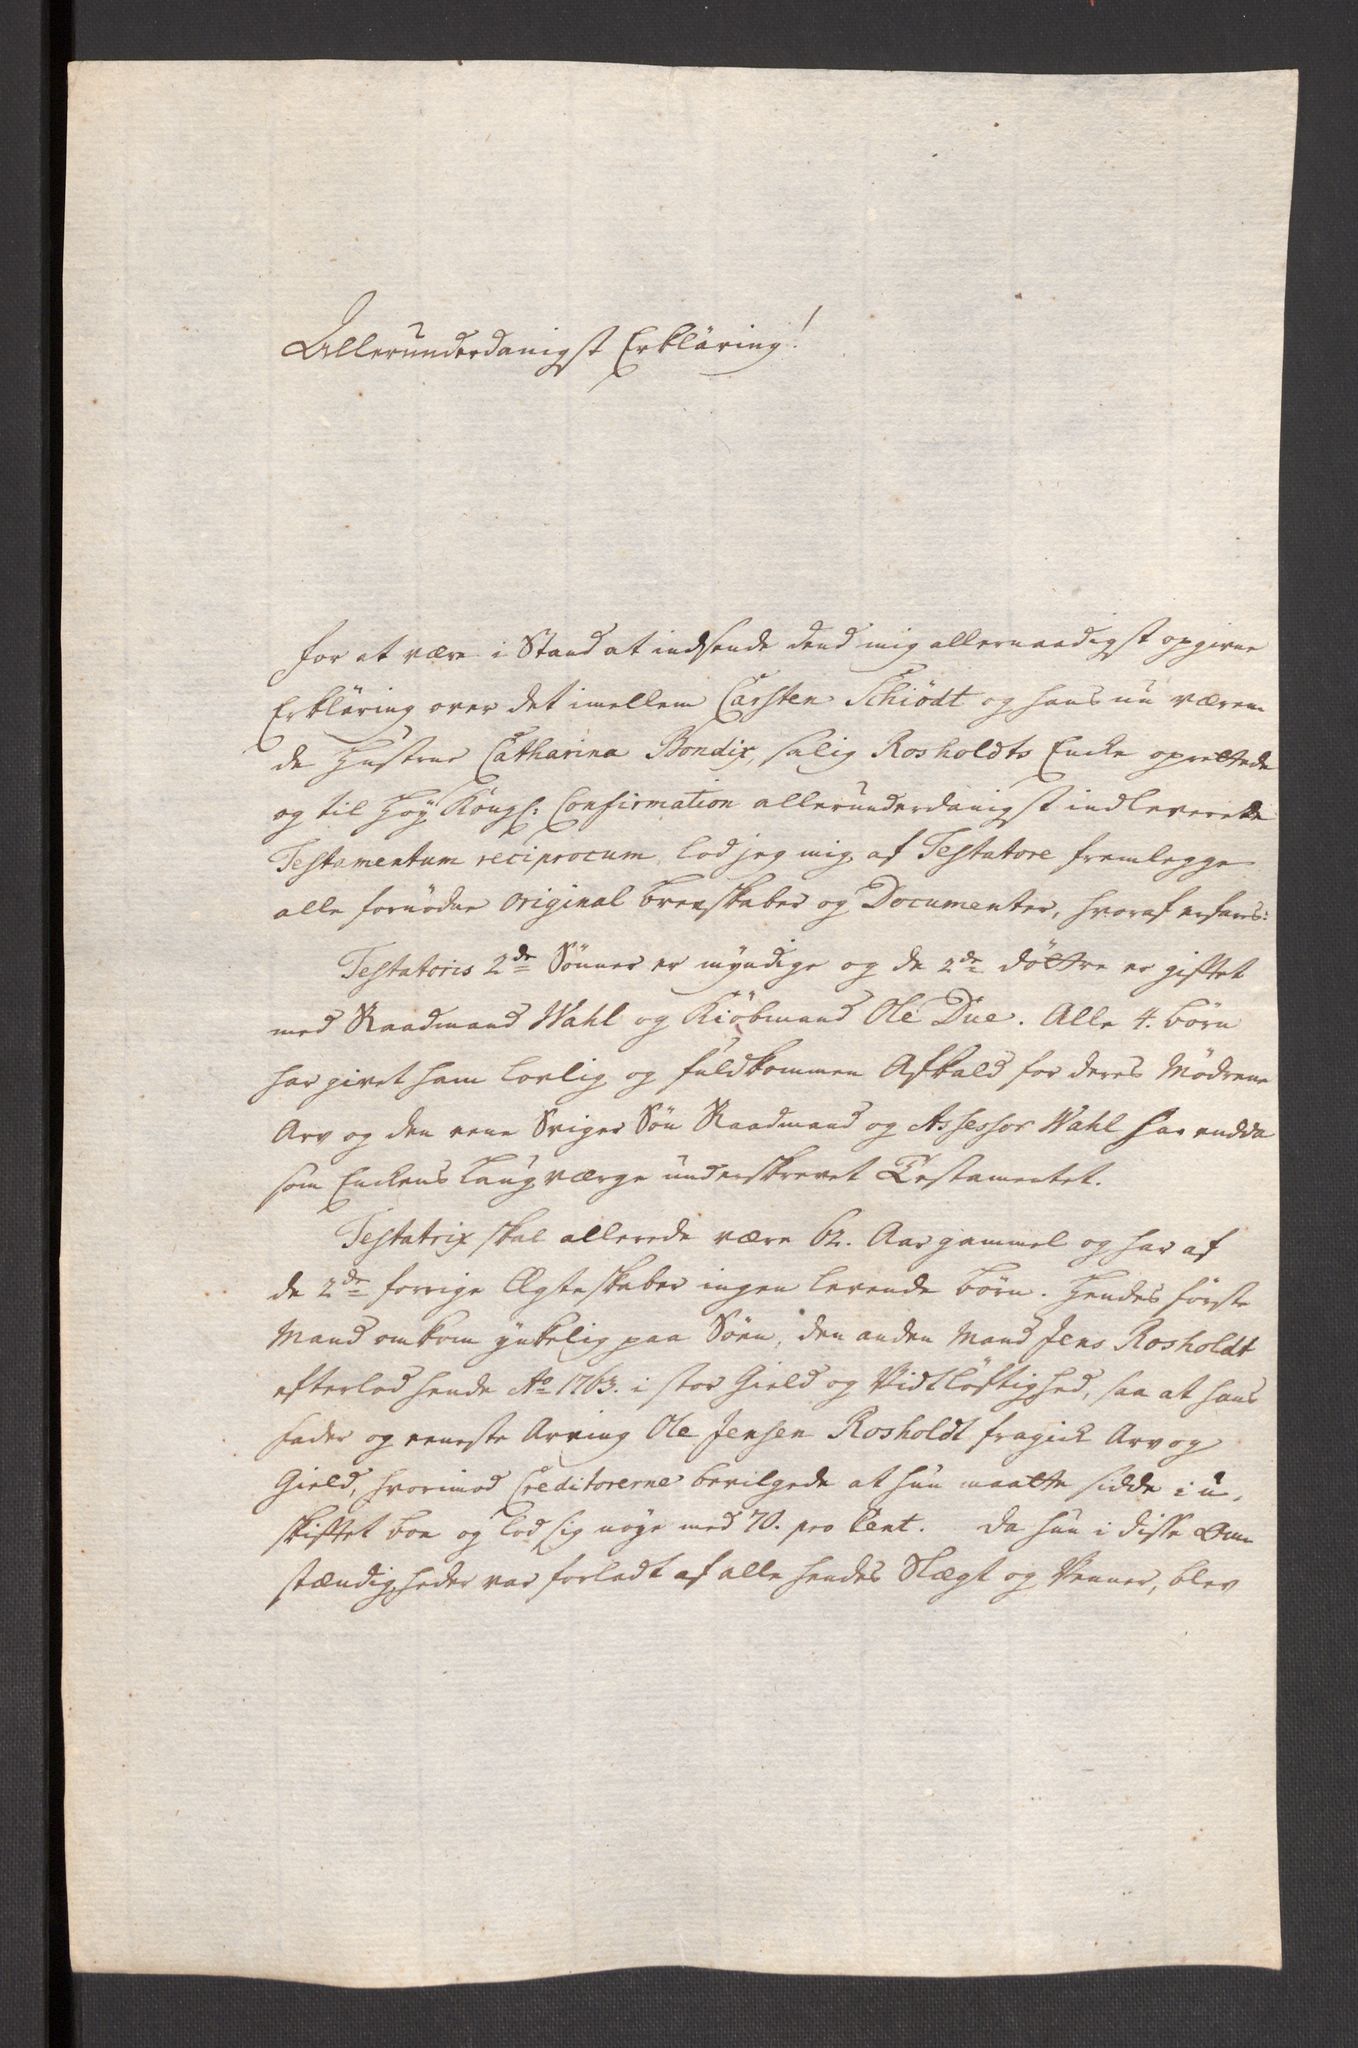 Allerunderdanigst Erkläring!
for at være i Stand at indsende dend mig allernaadigst opgivne
Erkläring over det imellem Carsten Schiödt og hans nu væren-
de Hustrue Catharina Bondix, salig Rosholdts Encke oprettede
og til Höy Köngl: Confirmation allerunderdanigst indleverede
Testamentum reciprocum, lod jeg mig af Testatore fremlegge
alle fornödne original brevskaber og Documenter, hvoraf erfares:
Testatoris 2de Sönner er myndige og de 2de döttre er giftet
med Raadmand Wahl og Kiöbmand Ole Due. Alle 4. börn
har givet ham lovlig og fuldkommen Afkald for deres Mödrene
Arv og den eene Sviger Sön Raadmand og Assessor Wahl har endda
som Enckens Laugværge underskrevet Testamentet.
Testatrix skal allerede være 62. Aar gammel og har af
de 2de forrige Ægteskaber ingen levende börn. Hendes förste
Mand omkom ynkelig paa Söen, den anden Mand Jens Rosholdt
efterlod hende Ao 1763. i stor Gield og Vidtlöftighed, saa at hans
fader og eeneste Arving Ole Jensen Rosholdt fragick Arv og
Gield, hvorimod Creditorerne bevilgede at hun maatte sidde i u-
skiftet boe og lod sig nöye med 70. pro Cent. Da hun i disse Om-
stændigheder var forladt af alle hendes Slægt og Venner, blev